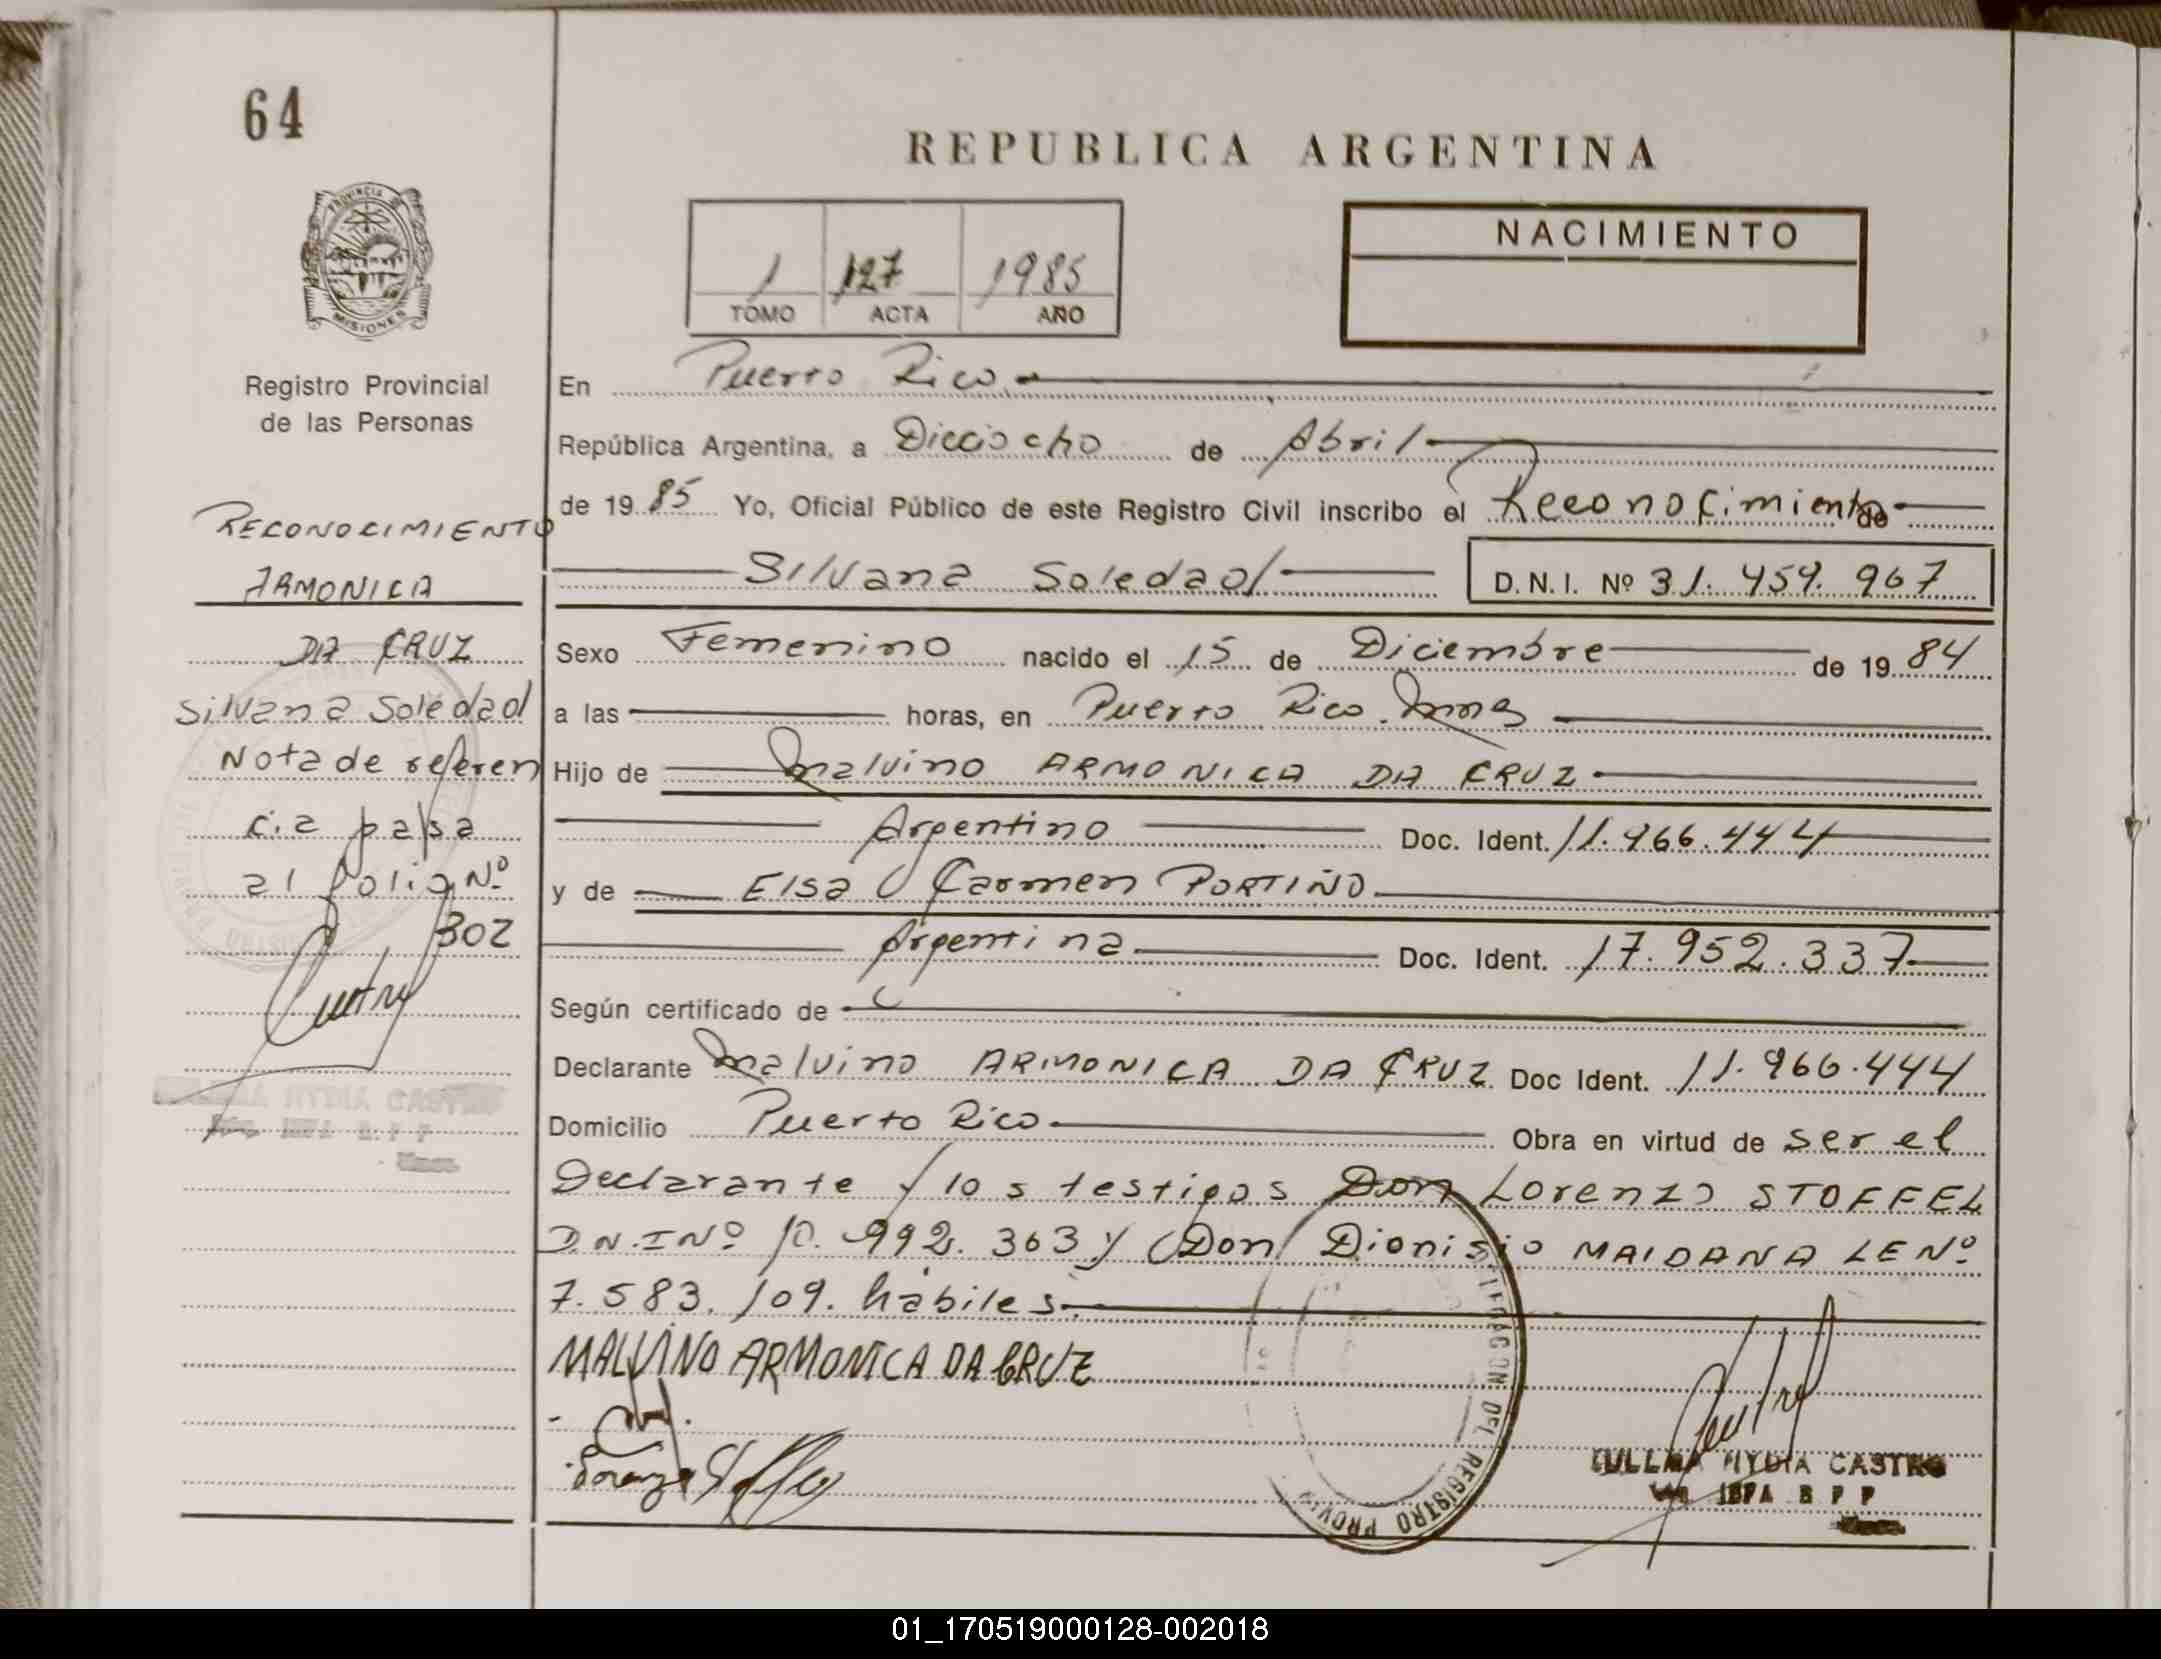 64
REPUBLICA ARGENTINA
PROVINCIA DE
MISIONES
Registro Provincial
de las Personas
1 127 1985
TOMO ACTA AÑO
NACIMIENTO
En Puerto Rico
República Argentina, a Dieciocho de Abril
de 19 85 Yo, Oficial Público de este Registro Civil inscribo el Reconocimiento de
Silvana Soledad D.N.I. Nº 31.459.967
Sexo Femenino nacido el 15 de Diciembre de 19 84
a las horas, en Puerto Rico. Mnes
Hijo de Malvino ARMONICA DA CRUZ
Argentino Doc. Ident. 11.966.444
y de Elsa Carmen PORTIÑO
Argentina Doc. Ident. 17.952.337
Según certificado de
Declarante Malvino ARMONICA DA CRUZ Doc Ident. 11.966.444
Domicilio Puerto Rico Obra en virtud de ser el
Declarante y los testigos Don Lorenzo STOFFEL
D.N.I Nº 10.992.363 y Don Dionisio MAIDANA LE Nº
7.583.109. hábiles.
MALVINO ARMONICA DA CRUZ
RECONOCIMIENTO
ARMONICA
DA CRUZ
Silvana Soledad
Nota de referen
cia pasa
al folio Nº
302
HYDIA CASTRO
DEL REGISTRO PROVIN
HYDIA CASTRO
01_170519000128-002018